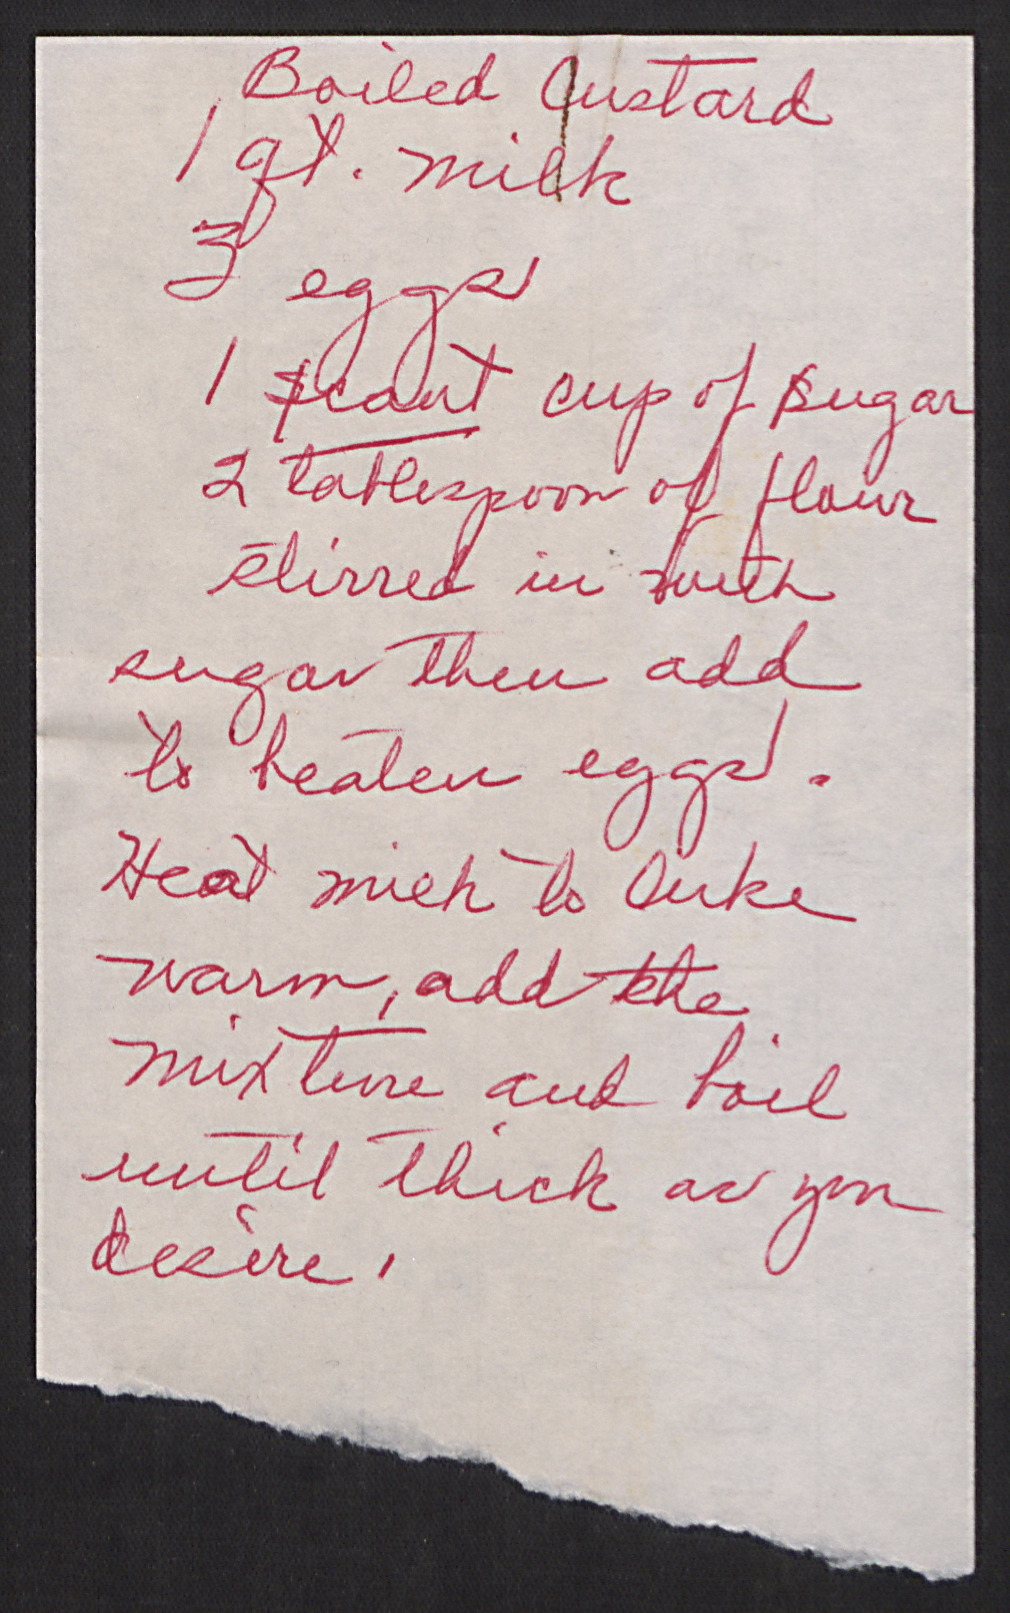 Boiled Custard
1 qt. milk
3 eggs
1 scant cup of sugar
2 tablespoon of flour
stirred in with
sugar then add
to beaten eggs.
Heat milk to luke
warm, add the
mixture and boil
until thick as you
desire.